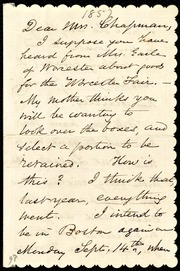 1857
Dear Mrs. Chapman,
I suppose you have
heard from Mrs. Earle
of Worcester about goods
for the Worcester Fair. —
My mother thinks you
will be wanting to
look over the boxes, and
select a portion to be
retained. How is
this? I think that
last year, everything
went. I intend to
be in Boston again on
Monday Sept. 14th, when